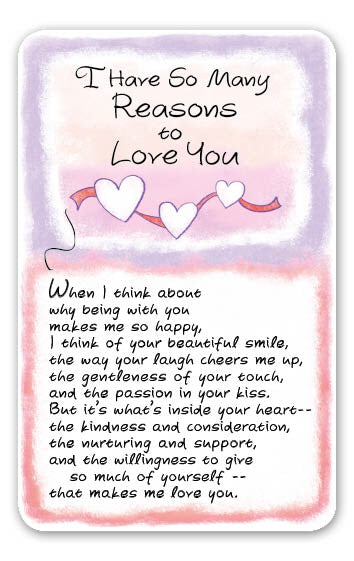 I Have So Many
Reasons
to
Love You
When I think about
why being with you
makes me so happy,
I think of your beautiful smile,
the way your laugh cheers me up,
the gentleness of your touch,
and the passion in your kiss.
But it's what's inside your heart--
the kindness and consideration,
the nurturing and support,
and the willingness to give
so much of yourself --
that makes me love you.